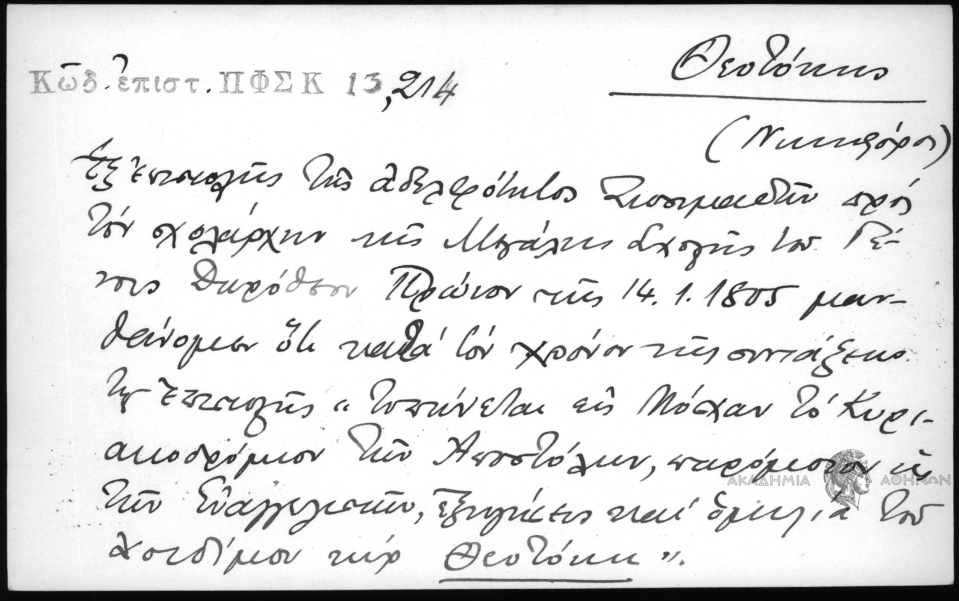 Θεοτόκης
Κῶδ. ἐπιστ. ΠΦΣΚ 13,214
(Νικηφόρος)
Ἐξ ἐπιστολῆς τῆς ἀδελφότητος Ζωσιμαδῶν πρὸς
τὸν σχολάρχην τῆς Μεγάλης Σχολῆς τοῦ Γέ-
νους Δωρόθεον Πρώιον τῆς 14.1.1805 μαν-
θάνομεν ὅτι κατὰ τὸν χρόνον τῆς συντάξεως
τῆς ἐπιστολῆς « τυπώνεται εἰς Μόσχαν τὸ Κυρι-
ακοδρόμιον τῶν Ἀποστόλων, παρόμοιον ὡς
ΑΚΑΔΗΜΙΑ ΑΘΗΝΩΝ
τῶν Εὐαγγελιστῶν, ἐξηγήσεις καὶ ὁμιλία τοῦ
ἀοιδίμου κὺρ Θεοτόκη».